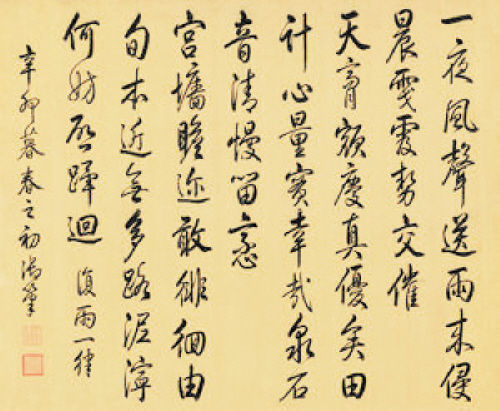 一夜風聲送雨来侵
晨勢交催
天膏額慶真優矣田
計心量實幸哉泉石
音清慢留
宮墻瞻邇敢徘徊由
旬本近無多路泥濘
何妨啟蹕迴 復雨一律
辛卯暮春之初御筆